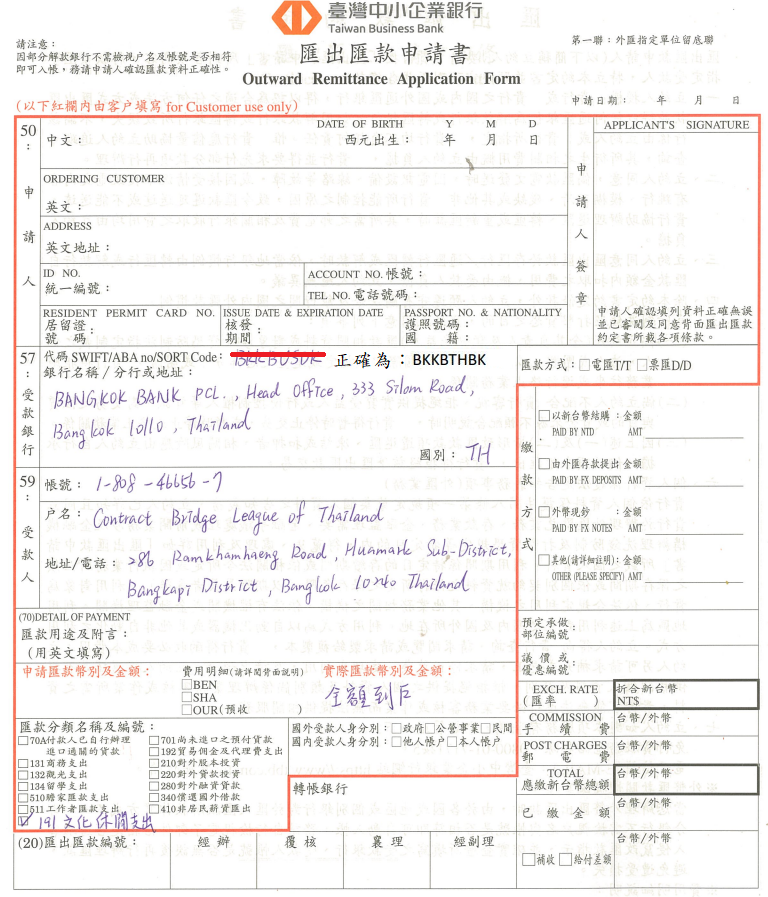 臺灣中小企業銀行
Taiwan Business Bank
請注意：
因部分解款銀行不需檢視户名及帳號是否相符
即可入帳，務請申請人確認匯款資料正確性。
匯出匯款申請書
Outward Remittance Application Form
第一聯：外匯指定單位留底聯
(以下紅欄內由客户填寫 for Customer use only)
申請日期： 年 月 日
50：
申請人
中文：
DATE OF BIRTH Y M D
西元出生： 年 月 日
申請人簽章
APPLICANT'S SIGNATURE
ORDERING CUSTOMER
英文：
ADDRESS
英文地址：
ID NO.
統一編號：
ACCOUNT NO. 帳號：
TEL NO. 電話號碼：
RESIDENT PERMIT CARD NO.
居留證
號 碼：
ISSUE DATE & EXPIRATION DATE
核發
期間：
PASSPORT NO. & NATIONALITY
護照號碼：
國 籍：
申請人確認填列資料正確無誤
並已審閱及同意背面匯出匯款
約定書所載各項條款。
57
受款銀行
代碼 SWIFT/ABA no/SORT Code： 正確為：BKKBTHBK
銀行名稱／分行或地址：
BANGKOK BANK PCL., Head Office, 333 Silom Road,
Bangkok 10110, Thailand
國別： TH
匯款方式：□電匯T/T □票匯D/D
繳款方式
□以新台幣結購：金額
PAID BY NTD AMT
□由外匯存款提出 金額
PAID BY FX DEPOSITS AMT
□外幣現鈔： 金額
PAID BY FX NOTES AMT
□其他(請詳細註明)：金額
OTHER (PLEASE SPECIFY) AMT
59
受款人
帳號： 1-808-46656-7
户名： Contract Bridge League of Thailand
地址/電話： 286 Ramkhamhaeng Road, Huamark Sub-District,
Bangkapi District, Bangkok 10240 Thailand
(70)DETAIL OF PAYMENT
匯款用途及附言：
(用英文填寫)
預定承做：
部位編號：
議價或：
優惠編號：
申請匯款幣別及金額：
費用明細(請詳閱背面說明)
□BEN
□SHA
□OUR(預收 )
實際匯款幣別及金額：
全額到戶
EXCH. RATE
(匯率 )
折合新台幣
NT$
COMMISSION
手 續 費
台幣/外幣
POST CHARGES
郵 電 費
台幣/外幣
TOTAL
應繳新台幣總額
台幣/外幣
已 繳 金 額
台幣/外幣
□補收 □給付差額
台幣/外幣
匯款分類名稱及編號：
□70A付款人已自行辦理
進口通關的貨款
□131商務支出
□132觀光支出
□134留學支出
□510贍家匯款支出
□511工作者匯款支出
☑ 191 文化休閒支出
□701尚未進口之預付貨款
□192貿易佣金及代理費支出
□210對外股本投資
□220對外貸款投資
□280對外融資貸款
□340償還國外借款
□410非居民薪資匯出
國外受款人身分別：□政府□公營事業□民間
國內受款人身分別：□他人帳户□本人帳户
轉帳銀行
(20)匯出匯款編號：
經 辦
覆 核
襄 理
經副理